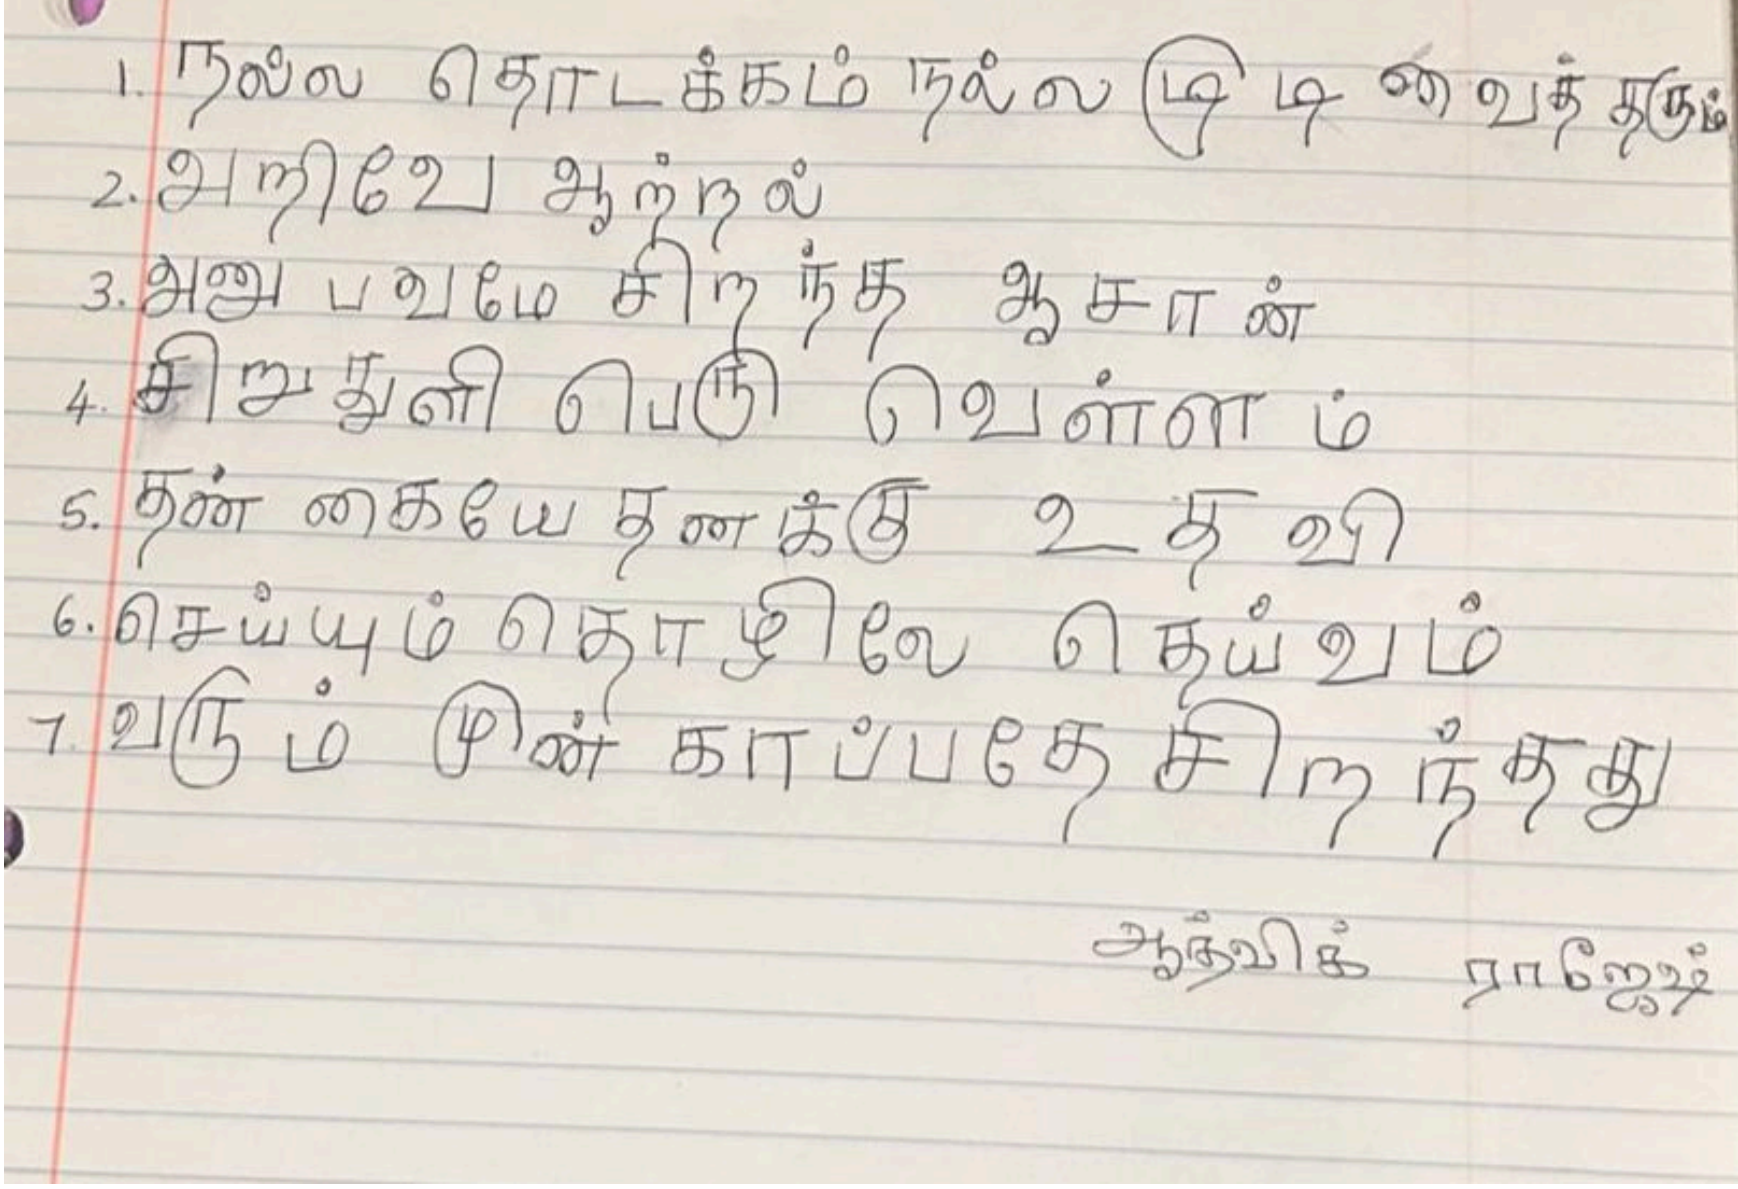 1. நல்ல தொடக்கம் நல்ல முடிவைத் தரும்
2. அறிவே ஆற்றல்
3. அனுபவமே சிறந்த ஆசான்
4. சிறுதுளி பெரு வெள்ளம்
5. தன் கையே தனக்கு உதவி
6. செய்யும் தொழிலே தெய்வம்
7. வரும் முன் காப்பதே சிறந்தது
ஆத்விக் ராஜேஷ்